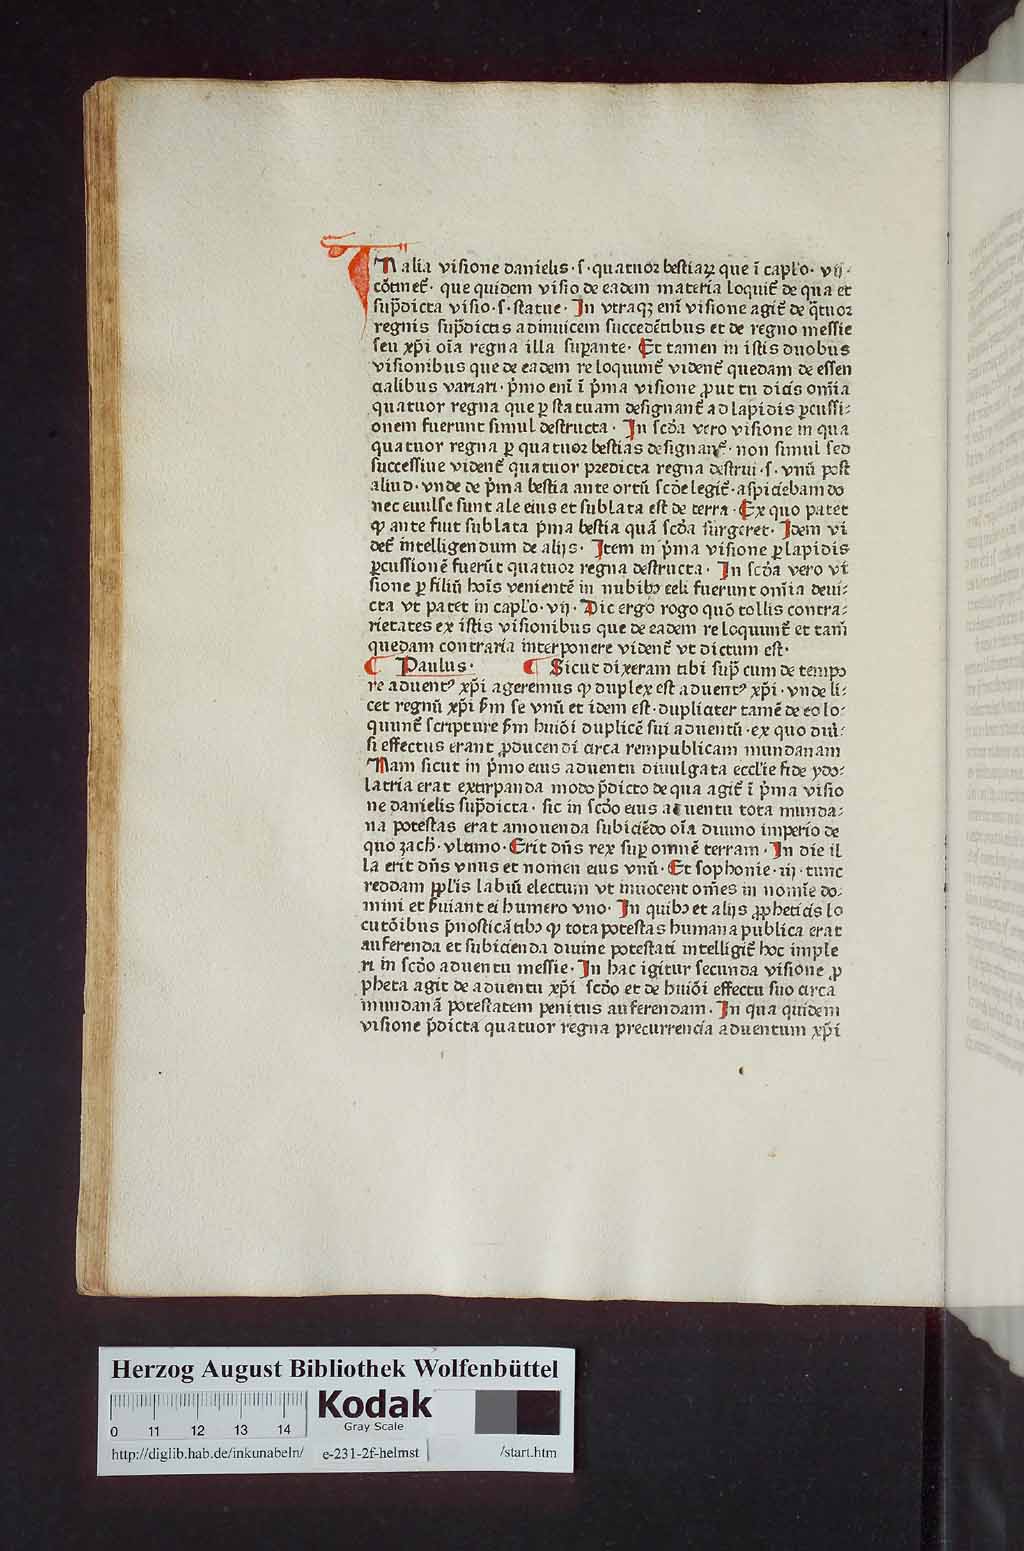 TN alia visione danielis · s · quatuor bestiaꝝ que ĩ capľo · vij ·
cõtinet̃ · que quidem visio de eadem materia loquit̃ de qua et
sup̃dicta visio · s · statue · In vtraqꝫ eni͂ visione agit̃ de q̃tuor
regnis sup̃dictis adinuicem succedẽtibus et de regno messie
seu xp̃i oi͂a regna illa suꝑante · Et tamen in istis duobus
visionibus que de eadem re loquunt̃ vident̃ quedam de essen
cialibus variari · p̃mo eni͂ ĩ p̃ma visione ꝓut tu dicis om̃ia
quatuor regna que ꝑ statuam designant̃ ad lapidis ꝑcussi⸗
onem fuerunt simul destructa · In scd̃a vero visione in qua
quatuor regna ꝑ quatuor bestias designant̃ · non simul sed
successiue vident̃ quatuor predicta regna destrui · s · vnũ post
aliud · vnde de p̃ma bestia ante ortũ scd̃e legit̃ · aspiciebam do
nec euulse sunt ale eius et sublata est de terra · Ex quo patet
ꝙ ante fuit sublata p̃ma bestia quã scd̃a surgeret · Idem vi
det̃ intelligendum de alijs · Item in p̃ma visione ꝑ lapidis
ꝑcussionẽ fuerũt quatuor regna destructa · In scd̃a vero vi
sione ꝑ filiũ hoĩs venientẽ in nubibꝰ celi fuerunt om̃ia deui⸗
cta vt patet in capľo · vij · Dic ergo rogo quõ tollis contra⸗
rietates ex istis visionibus que de eadem re loquunt̃ et tam̃
quedam contraria interponere vident̃ vt dictum est ·
¶ Paulus · ¶ Sicut dixeram tibi sup̃ cum de tempo
re aduentꝰ xp̃i ageremus ꝙ duplex est aduentꝰ xp̃i · vnde li⸗
cet regnũ xp̃i s̃m se vnũ et idem est · dupliciter tamẽ de eo lo⸗
quunt̃ scripture s̃m huiõi duplicẽ sui aduentũ · ex quo diũ⸗
si effectus erant ꝓducendi circa rempublicam mundanam
Nam sicut in p̃mo eius aduentu diuulgata eccľie fide ydo⸗
latria erat extirpanda modo p̃dicto de qua agit̃ ĩ p̃ma visio
ne danielis sup̃dicta · sic in scd̃o eius aduentu tota munda⸗
na potestas erat amouenda subiciẽdo oi͂a diuino imperio de
quo zach̃ · vltimo · Erit dñs rex suꝑ omnẽ terram · In die il
la erit dñs vnus et nomen eius vnũ · Et sophonie · iij · tunc
reddam ppľis labiũ electum vt inuocent om̃es in nomi͂e do⸗
mini et s̃uiant ei humero vno · In quibꝰ et alijs ꝓpheticis lo
cutõibus p̃nosticãtibꝰ ꝙ tota potestas humana publica erat
auferenda et subicienda diuine potestati intelligit̃ hoc imple
ri in scd̃o aduentu messie · In hac igitur secunda visione ꝓ
pheta agit de aduentu xp̃i scd̃o et de huiõi effectu suo circa
mundanã potestatem penitus auferendam · In qua quidem
visione p̃dicta quatuor regna precurrencia aduentum xp̃i
Herzog August Bibliothek Wolfenbüttel
Kodak
Gray Scale
0 11 12 13 14
http://diglib.hab.de/inkunabeln/ e-231-2f-helmst /start.htm